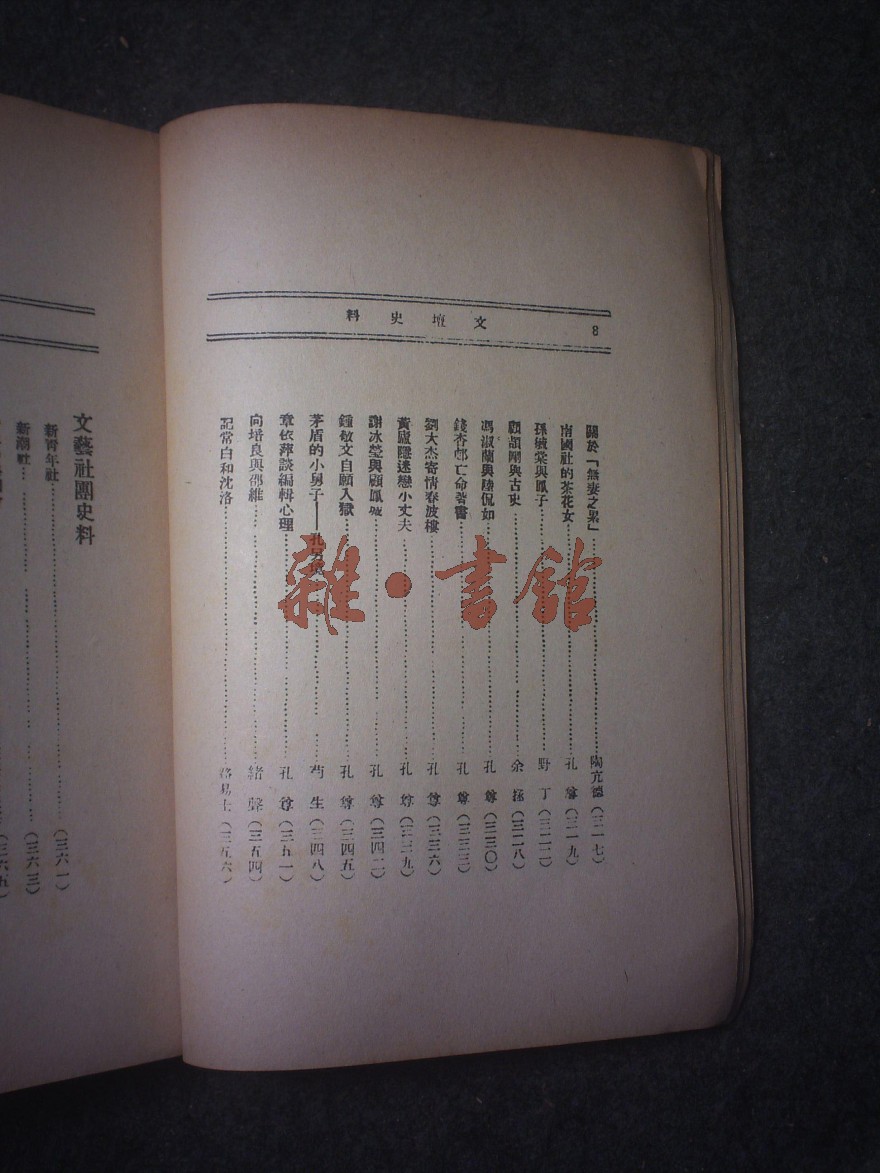 文壇史料
8
關於「無妻之累」 陶亢德(三一七)
南國社的茶花女 孔尊(三一九)
孫毓棠與鳳子 野丁(三二二)
顧頡剛與古史 余拯(三二八)
馮淑蘭與陸侃如 孔尊(三三〇)
錢杏邨亡命著書 孔尊(三三三)
劉大杰寄情春波樓 孔尊(三三六)
黃廬隱迷戀小丈夫 孔尊(三三九)
謝冰瑩與顧鳳城 孔尊(三四二)
鍾敬文自願入獄 孔尊(三四五)
茅盾的小舅子——孔另境 生(三四八)
章依萍談編輯心理 孔尊(三五一)
向培良與邵維 緒聲(三五四)
記常白和沈洛 路易士(三五六)
文藝社團史料
新青年社(三六一)
新潮社(三六三)
(三六五)
雜·書館